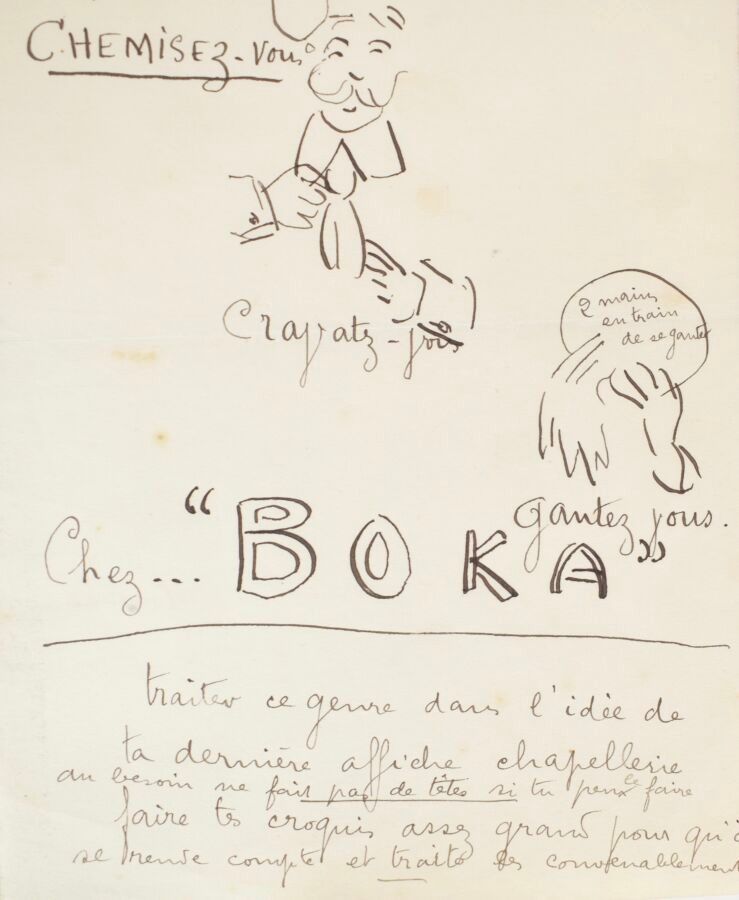 CHEMISEZ-vous
Cravatez-vous
2 mains
en train
de se ganter
gantez vous.
Chez... "BOKA"
traiter ce genre dans l'idée de
ta dernière affiche chapellerie
au besoin ne fais pas de têtes si tu peux le faire
faire tes croquis assez grand pour qu'
se rende compte et traité les convenablement